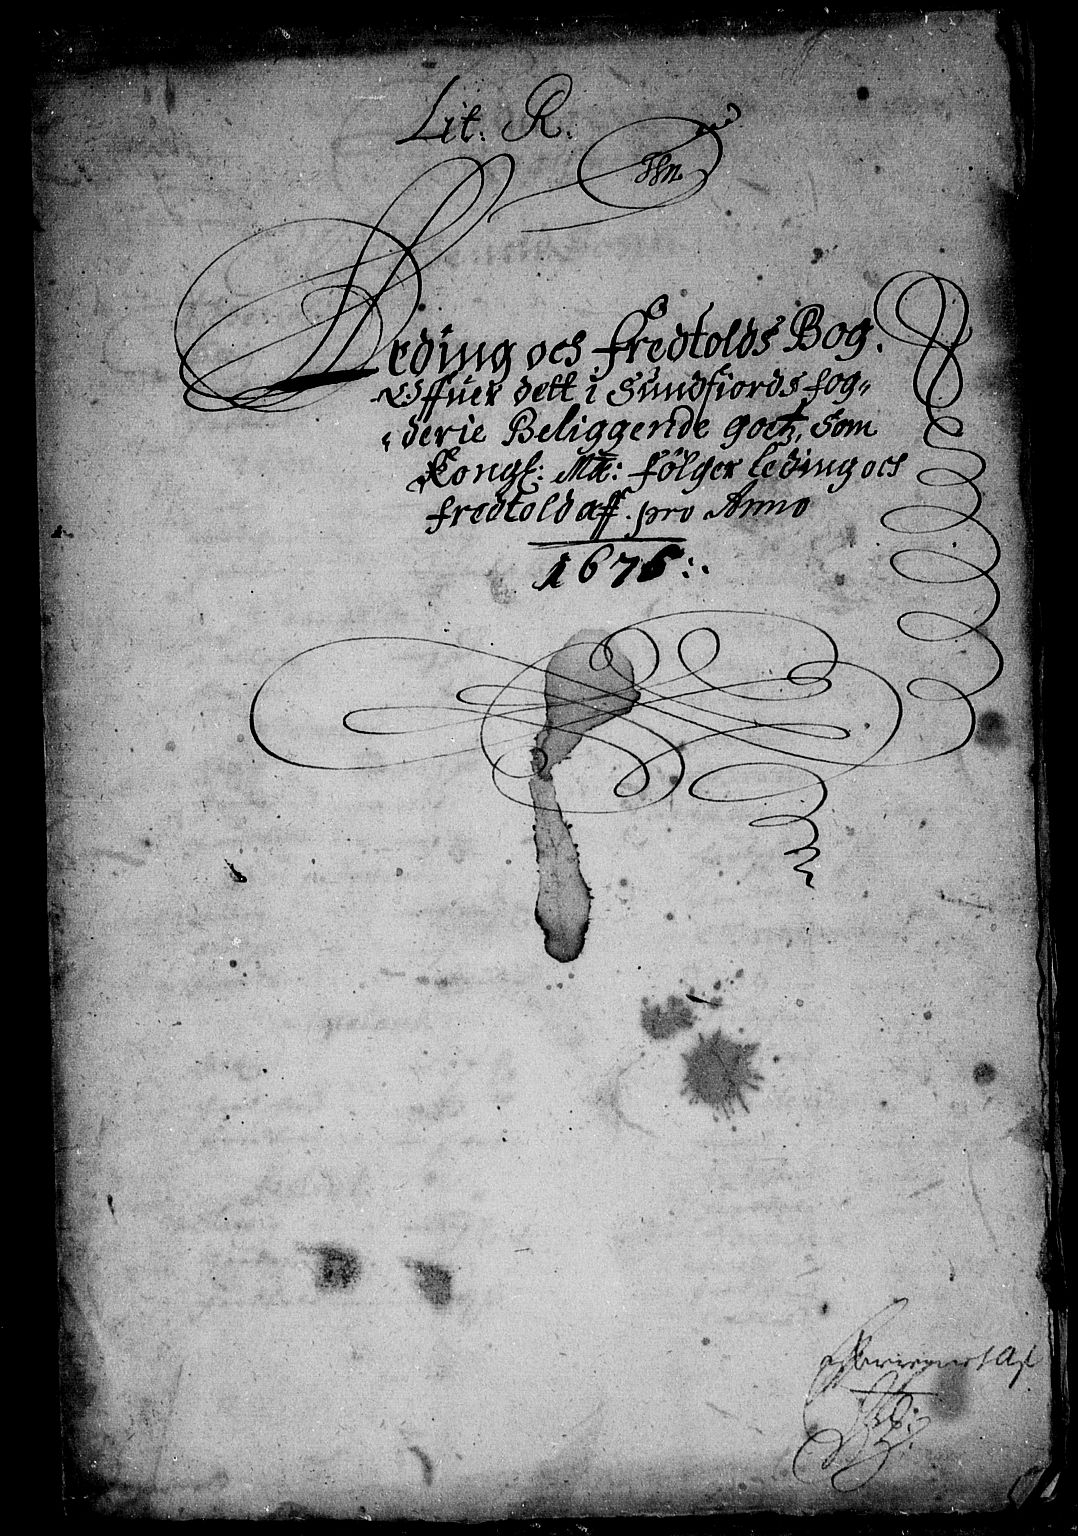 Lit. R.
Leding och fredtolds Bog.
Offuer dett i Sundfiords fog„
„derie Beliggende gotz, Som
Kongl: Mtt: fölger leding och
fredtold aff. pro Anno
1676:.